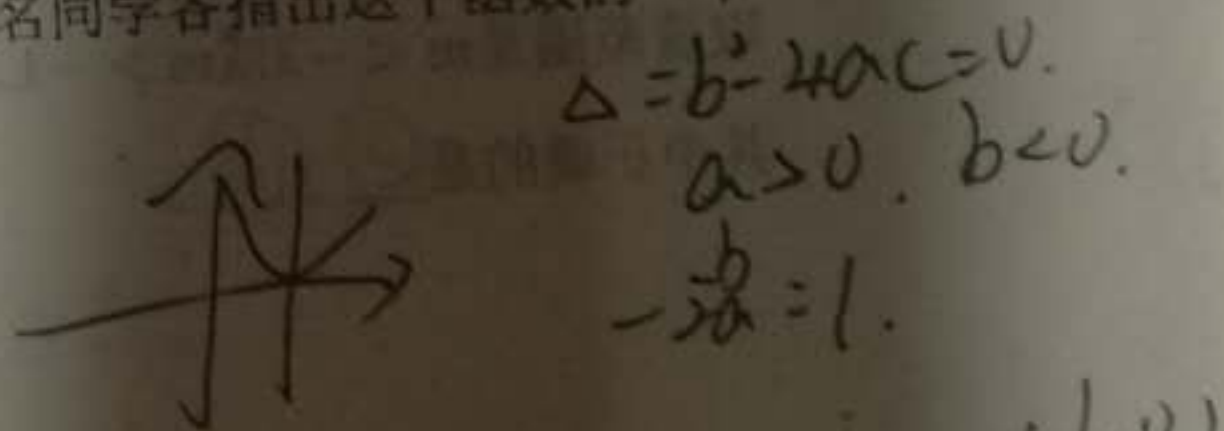 名同学各指出这个函数的一
△=b²-4ac=0.
a>0. b<0.
-b/2a=1.